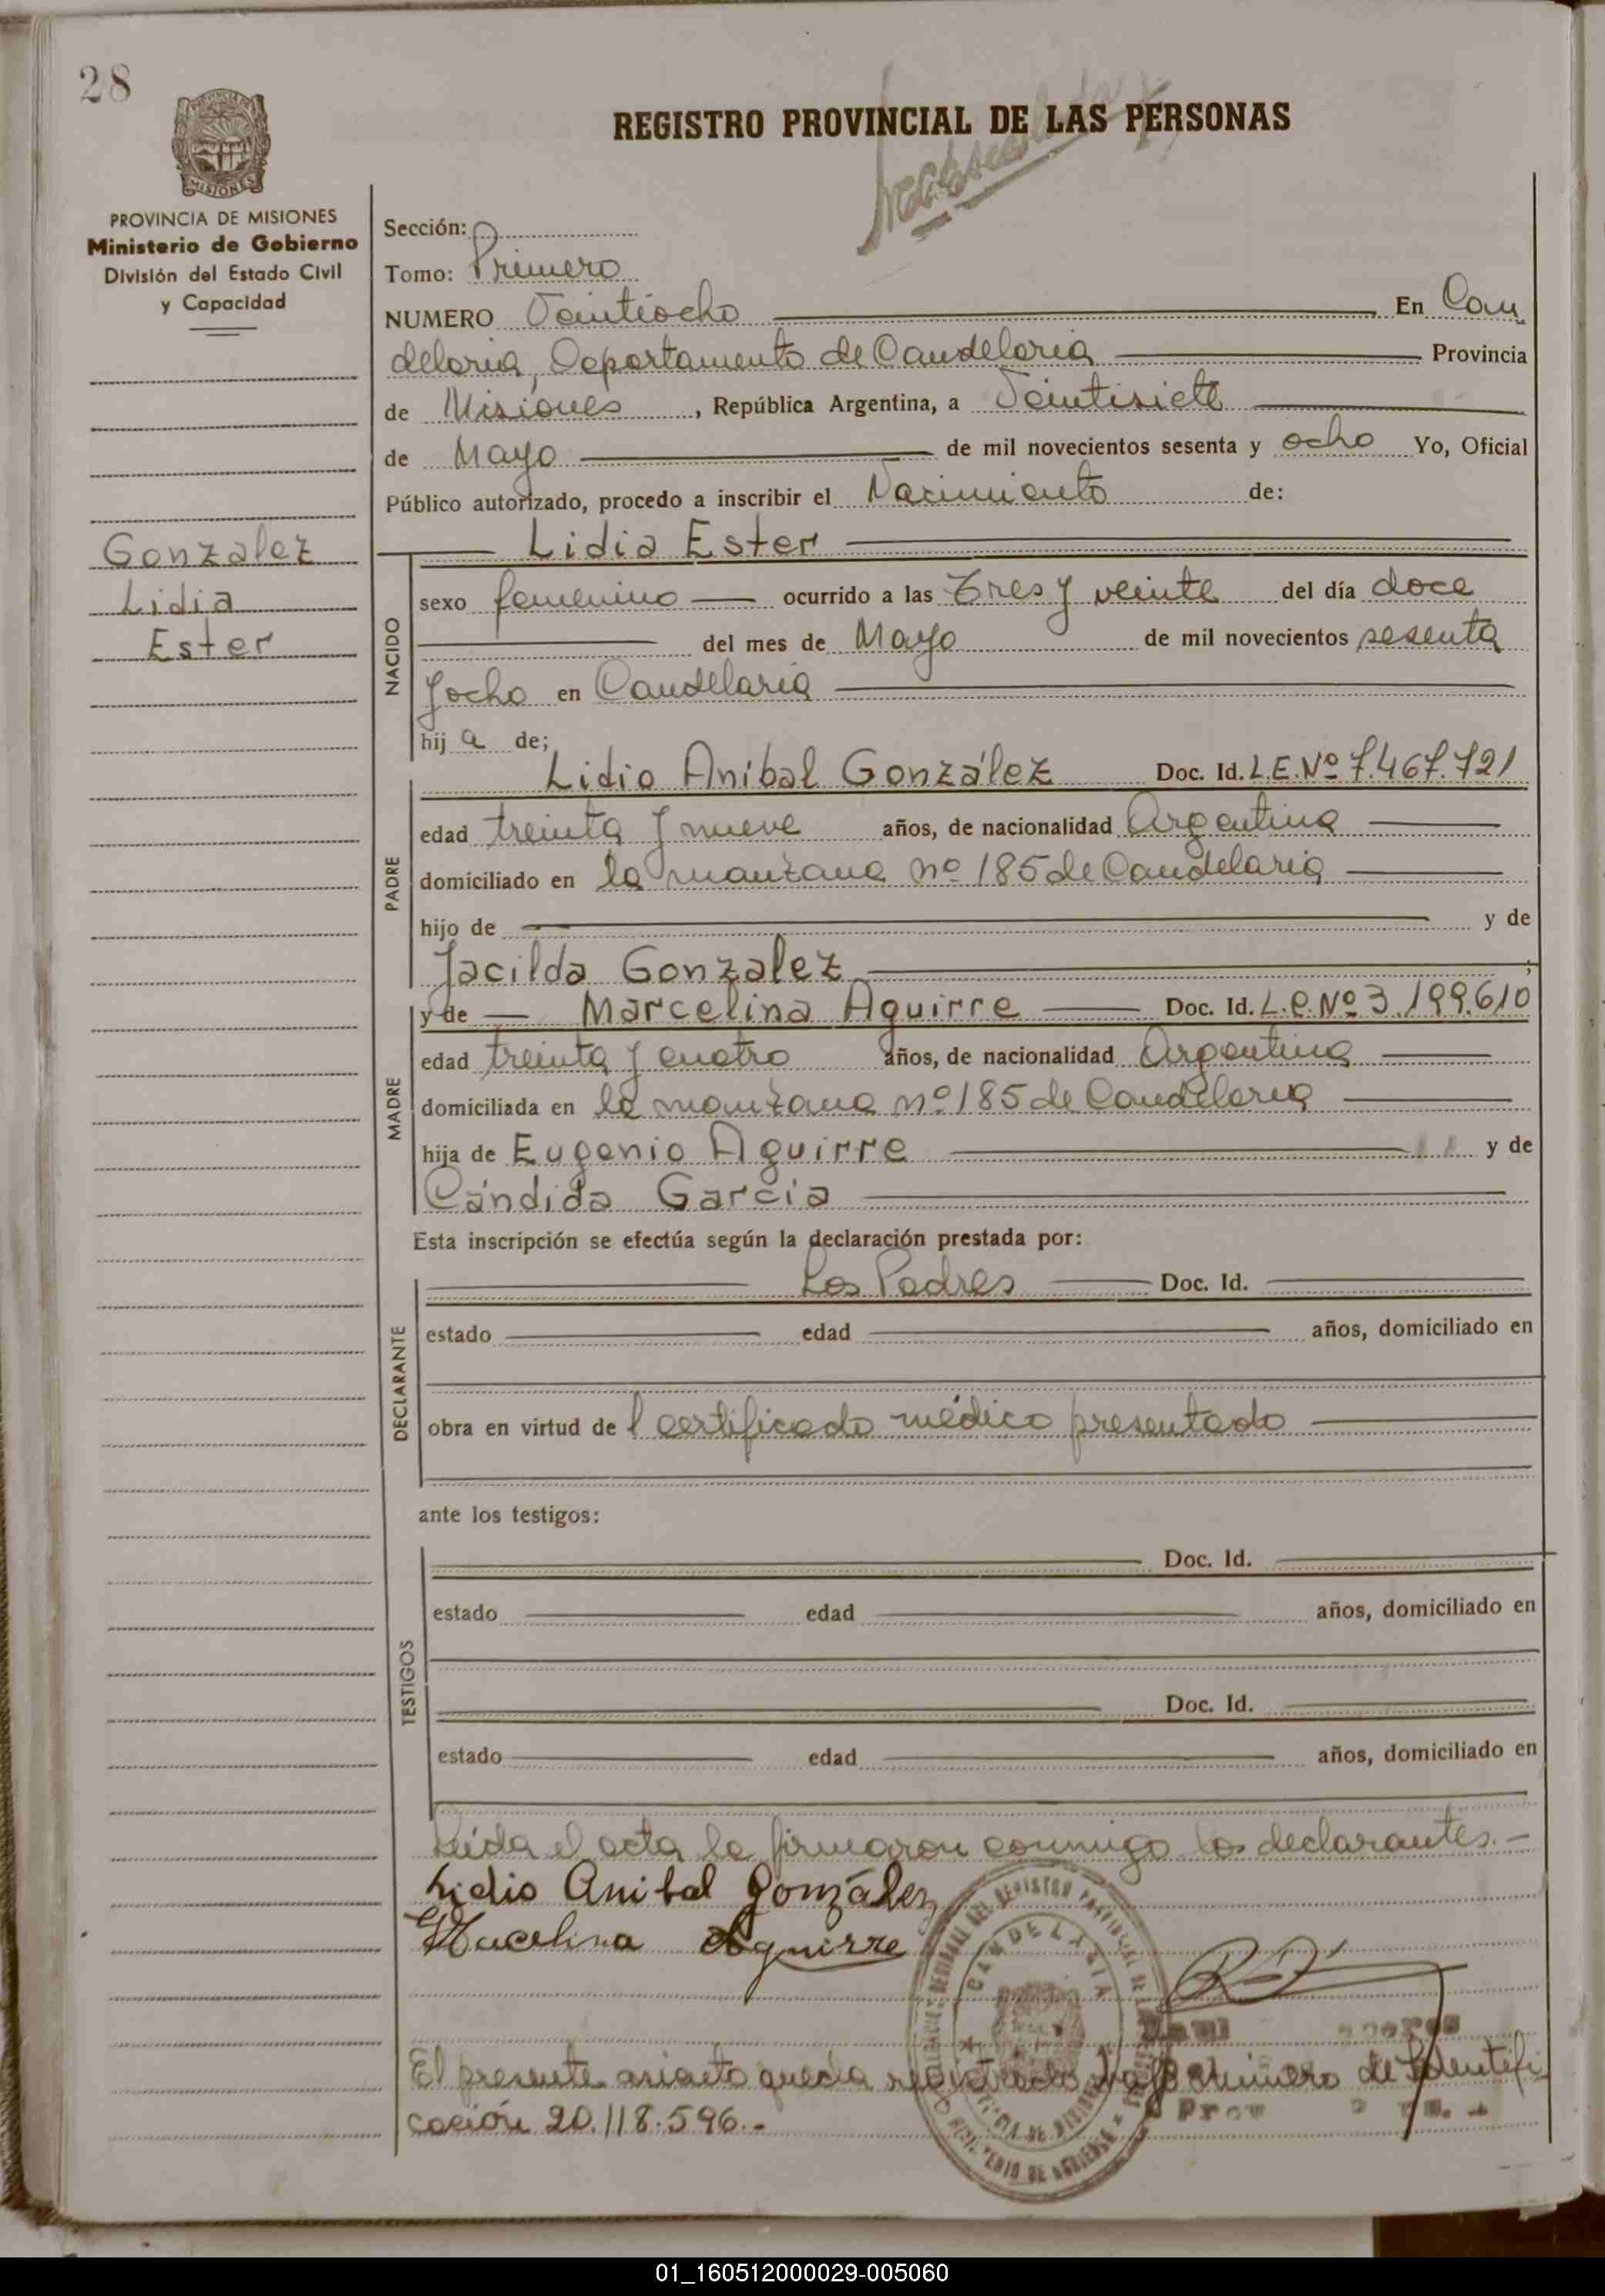 28
REGISTRO PROVINCIAL DE LAS PERSONAS
PROVINCIA DE
MISIONES
PROVINCIA DE MISIONES
Ministerio de Gobierno
División del Estado Civil
y Capacidad
Gonzalez
Lidia
Ester
Sección:
Tomo: Primero
NUMERO Veintiocho En Can
delaria, Departamento de Candelaria Provincia
de Misiones, República Argentina, a Veintisiete
de Mayo de mil novecientos sesenta y ocho Yo, Oficial
Público autorizado, procedo a inscribir el Nacimiento de:
Lidia Ester
NACIDO
sexo femenino ocurrido a las Tres y veinte del día doce
del mes de Mayo de mil novecientos sesenta
y ocho en Candelaria
hij a de;
PADRE
Lidio Aníbal González Doc. Id. L.E. Nº 7.467.721
edad treinta y nueve años, de nacionalidad Argentina
domiciliado en la manzana nº 185 de Candelaria
hijo de y de
Jacilda Gonzalez ;
MADRE
y de Marcelina Aguirre Doc. Id. L.C. Nº 3.199.610
edad treinta y cuatro años, de nacionalidad Argentina
domiciliada en la manzana nº 185 de Candelaria
hija de Eugenio Aguirre y de
Cándida García
Esta inscripción se efectúa según la declaración prestada por:
DECLARANTE
Los Padres Doc. Id.
estado edad años, domiciliado en
obra en virtud de l certificado médico presentado
ante los testigos:
TESTIGOS
Doc. Id.
estado edad años, domiciliado en
Doc. Id.
estado edad años, domiciliado en
Leída el acta la firmaron conmigo los declarantes.-
Lidio Anibal González
Marcelina Aguirre
CANDELARIA
El presente asiento queda registrado bajo número de Identifi
cación 20.118.596.-
01_160512000029-005060